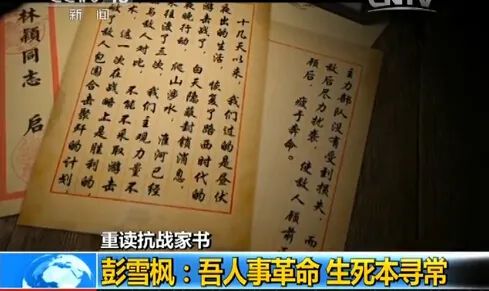 新闻
CNTV
主力部队没有受到损失,而
敌后尽力扰袭,使敌人顾前
顾后,疲于奔命。
十几天以来,我们过的是昼伏
夜出的生活,恢复了路西时代的
游击战了,白天隐蔽封锁消息,
夜晚行动,爬山涉水,淮河已经
来往渡了三次,我们主观力量不
与敌人对比,不能不采取游击
术,这一次在战略上是胜利的,
了敌人包围合击聚歼的计划,
林颖同志
重读抗战家书
彭雪枫:吾人事革命 生死本寻常